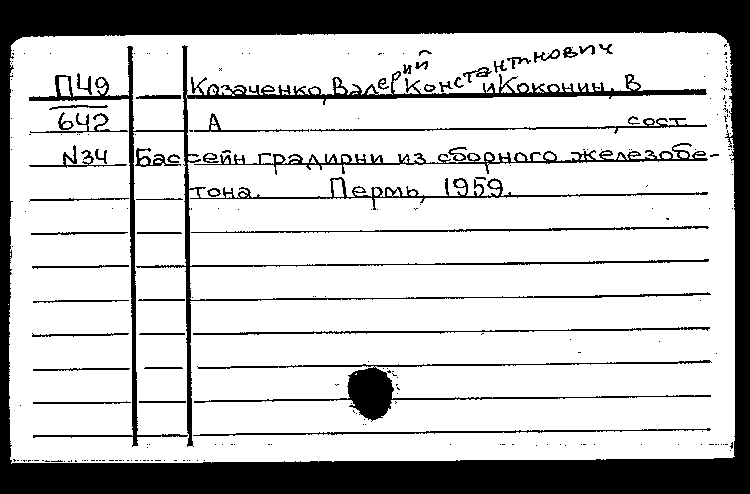 П49 Козаченко, Валерий Константинович и Коконин, В
642 А , сост
N34 Бассейн градирни из сборного железобе-
тона. Пермь, 1959.